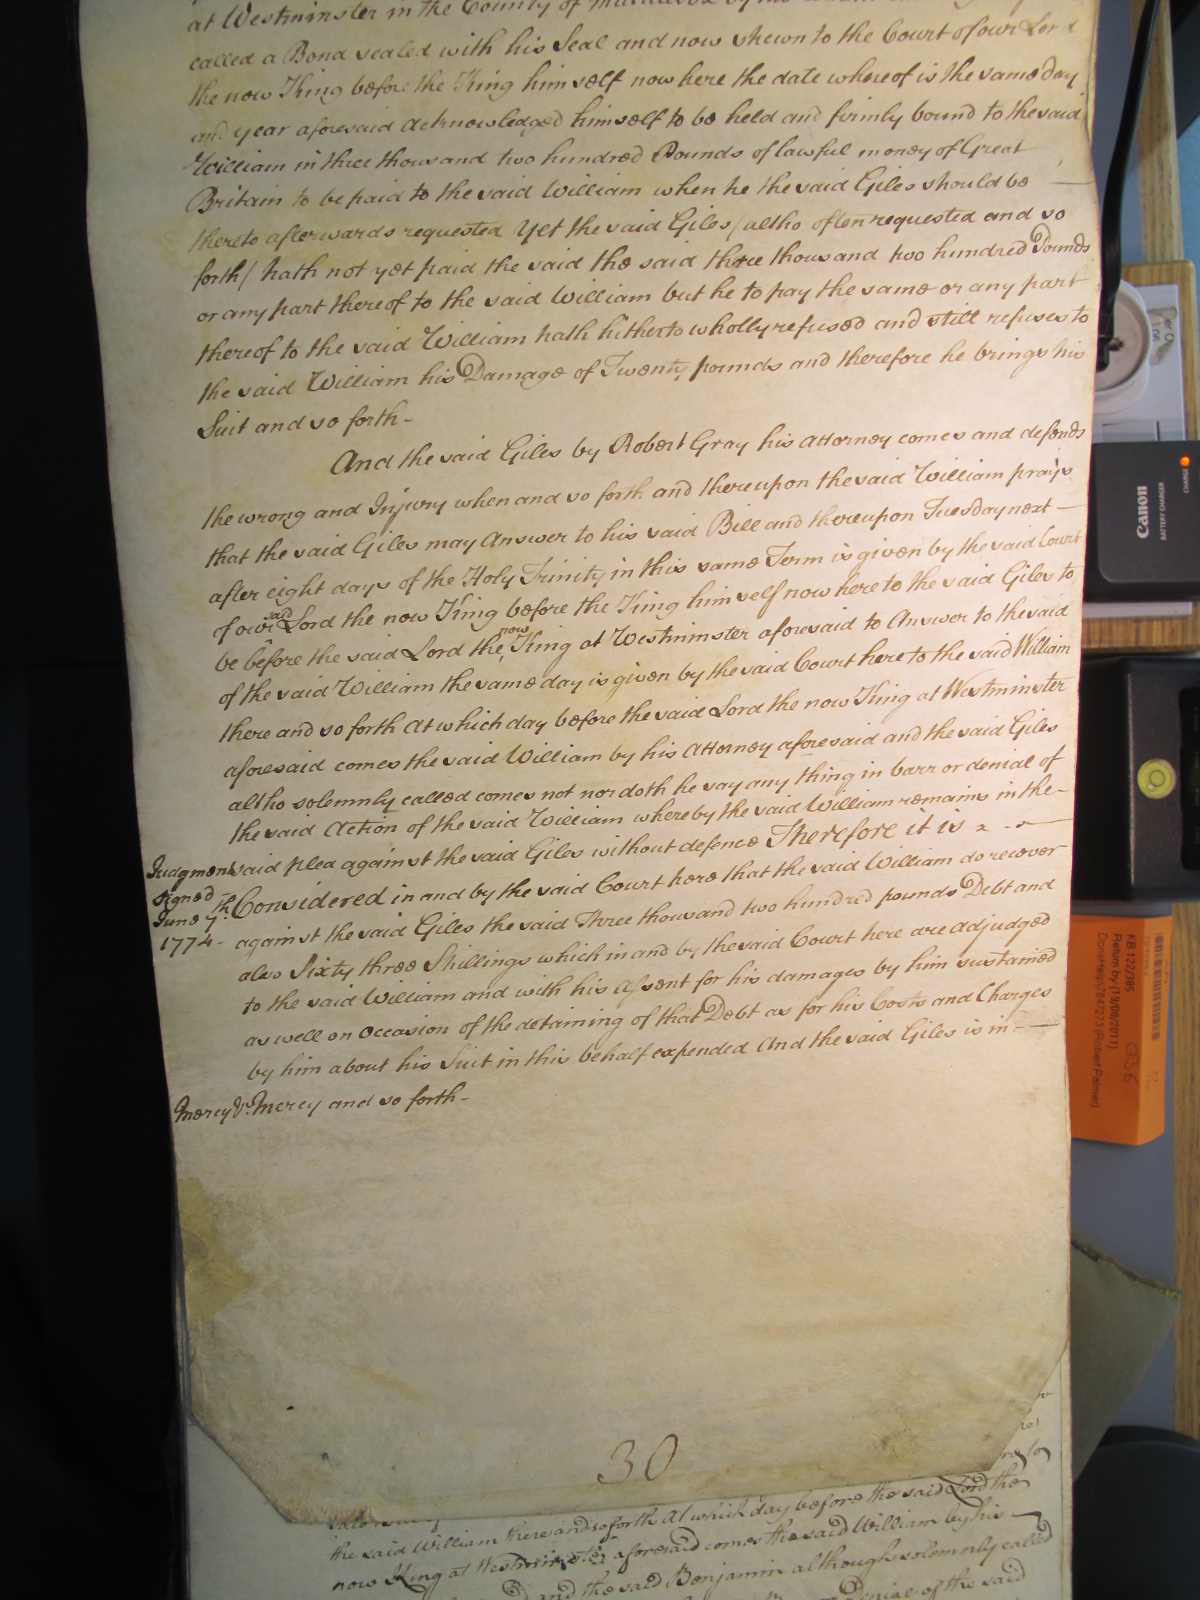 at Westminster in the County of Middlesex by his
called a Bond sealed with his Seal and now shewn to the Court of our Lord
the now King before the King himself now here the date whereof is the same day
and year aforesaid acknowledged himself to be held and firmly bound to the said
William in three thousand two hundred Pounds of lawful money of Great
Britain to be paid to the said William when he the said Giles should be
thereto afterwards requested Yet the said Giles / altho often requested and so
forth / hath not yet paid the said the said three thousand two hundred Pounds
or any part thereof to the said William but he to pay the same or any part
thereof to the said William hath hitherto wholly refused and still refuses to
the said William his Damage of Twenty pounds and therefore he brings his
Suit and so forth -
And the said Giles by Robert Gray his Attorney comes and defends
the wrong and Injury when and so forth and thereupon the said William prays
that the said Giles may Answer to his said Bill and thereupon Tuesday next -
after eight days of the Holy Trinity in this same Term is given by the said Court
of our said Lord the now King before the King himself now here to the said Giles to
be before the said Lord the now King at Westminster aforesaid to Answer to the said
of the said William the same day is given by the said Court here to the said William
there and so forth At which day before the said Lord the now King at Westminster
aforesaid comes the said William by his Attorney aforesaid and the said Giles
altho solemnly called comes not nor doth he say any thing in barr or denial of
the said Action of the said William whereby the said William remains in the -
said plea against the said Giles without defence Therefore it is
Judgment
signed
June 7th
1774 -
Considered in and by the said Court here that the said William do recover
against the said Giles the said Three thousand two hundred pounds Debt and
also Sixty three Shillings which in and by the said Court here are adjudged
to the said William and with his assent for his damages by him sustained
as well on Occasion of the detaining of that Debt as for his Costs and Charges
by him about his Suit in this behalf expended And the said Giles is in -
Mercy &c. Mercy and so forth -
30
the said William there and so forth At which day before the said Lord the
now King at Westminster aforesaid comes the said William by his
and the said Benjamin although solemnly called
Denial of the said
Canon
BATTERY CHARGER
CHARGE
KB 122/385
Return by (19/08/2011)
(Robert Palmer)